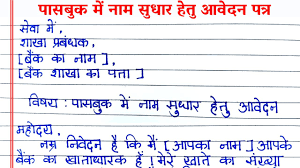 पासबुक में नाम सुधार हेतु आवेदन पत्र
सेवा में,
शाखा प्रबंधक,
[बैंक का नाम],
[बैंक शाखा का पता]
विषय : पासबुक में नाम सुधार हेतु आवेदन
महोदय,
नम्र निवेदन है कि मैं [आपका नाम] आपके
बैंक का खाताधारक हूँ। मेरे खाते का संख्या